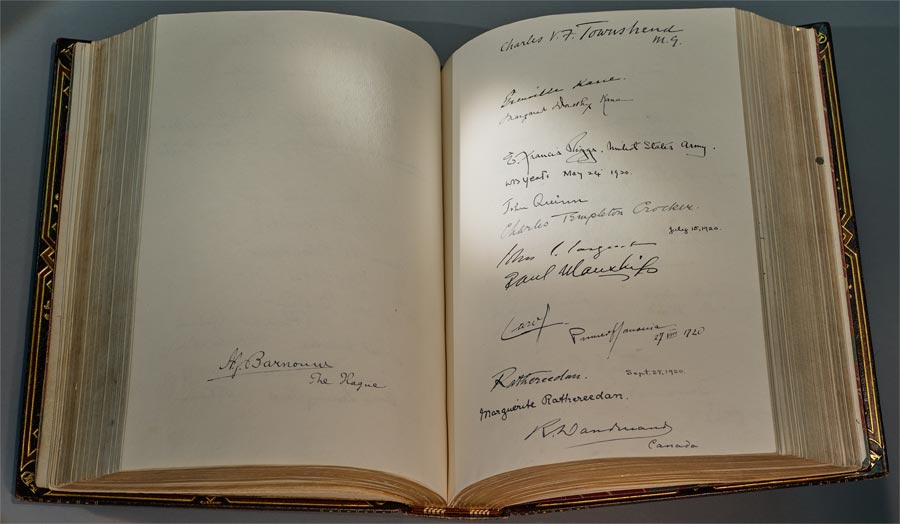 H. J. Barnouw
The Hague
Charles V. F. Townshend
M.G.
Grenville Kane.
Margaret Dorothy Kane
E. Francis Riggs. United States Army.
May 24 1920.
John Quinn
Charles Templeton Crocker.
July 15, 1920.
Paul Manship
Carol
27 VIII 1920
Rathcreedan. Sept. 27, 1920.
Marguerite Rathcreedan.
R. Dandurand
Canada